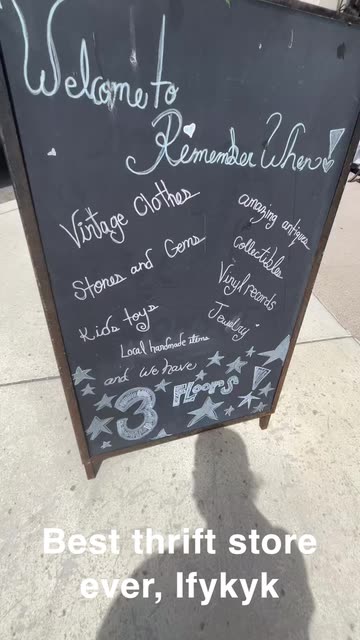 Welcome to
Remember When!
Vintage Clothes
Stones and Gems
Kids toys
amazing antiques
Collectibles
Vinyl records
Jewelry
Local handmade items
and we have
3 Floors!
Best thrift store
ever, Ifykyk